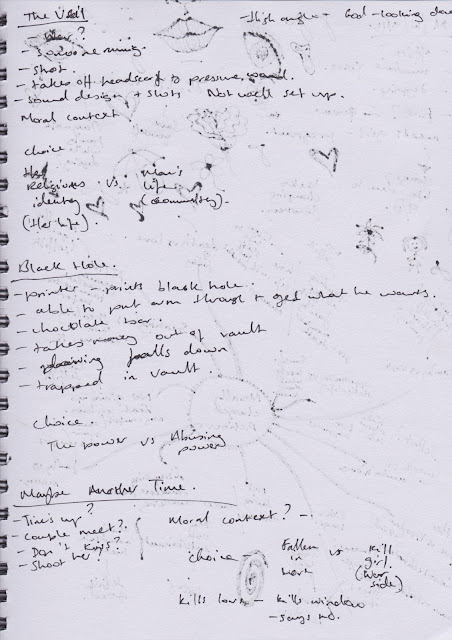 The Veil
- High angle - God - looking down
- Someone running.
- Shot.
- takes off headscarf to pressure wound.
- sound design + shots Not well set up.
Moral context
Choice
Her Religious identity (Her life) vs. man's life (community).
Black Hole.
- printer - prints black hole.
- able to put arm through + get what he wants.
- chocolate bar.
- takes money out of vault
- falls down
- trapped in vault.
Choice.
The power vs Abusing power
Maybe Another Time.
- Time's up?
- Couple meet?
- Don't kiss?
- Shoot her?
Moral context? -
Choice - Fallen in love vs Kill girl. (War side)
Kills love - Kills window
- says no.